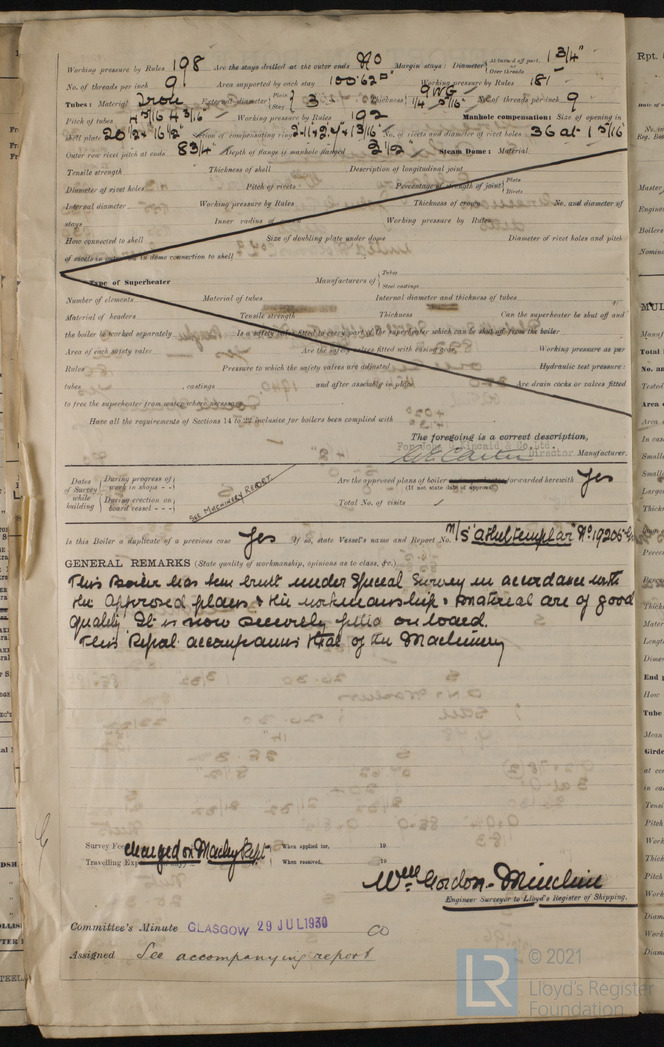 Working pressure by Rules 198 Are the stays drilled at the outer ends No Margin stays: Diameter { At turned off part, Over threads 1 3/4"
No. of threads per inch 9 Area supported by each stay 100.62 □" Working pressure by Rules 181
Tubes: Material Iron External diameter { Plain Stay 3 Thickness { 9 WG 1/4" 5/16" No. of threads per inch 9
Pitch of tubes 4 3/16 4 3/16" Working pressure by Rules 192 Manhole compensation: Size of opening in
shell plate 20 1/2 x 16 1/2" Section of compensating ring No. of rivets and diameter of rivet holes 36 at 1 5/16"
Outer row rivet pitch at ends 8 3/4" Depth of flange if manhole flanged 3 1/2" Steam Dome: Material
Tensile strength Thickness of shell Description of longitudinal joint
Diameter of rivet holes Pitch of rivets Percentage of strength of joint { Plate Rivets
Internal diameter Working pressure by Rules Thickness of crown No. and diameter of
stays Inner radius of crown Working pressure by Rules
How connected to shell Size of doubling plate under dome Diameter of rivet holes and pitch
of rivets in outer row in dome connection to shell
Type of Superheater Manufacturers of { Tubes Steel castings
Number of elements Material of tubes Internal diameter and thickness of tubes
Material of headers Tensile strength Thickness Can the superheater be shut off and
the boiler be worked separately Is a safety valve fitted to every part of the superheater which can be shut off from the boiler
Area of each safety valve Are the safety valves fitted with easing gear Working pressure as per
Rules Pressure to which the safety valves are adjusted Hydraulic test pressure:
tubes , castings and after assembly in place Are drain cocks or valves fitted
to free the superheater from water where necessary
Have all the requirements of Sections 14 to 22 inclusive for boilers been complied with
The foregoing is a correct description,
For John G. Kincaid & Co. Ltd.
Director Manufacturer.
Dates of Survey while building { During progress of work in shops - - During erection on board vessel - - - } SEE MACHINERY REPORT. Are the approved plans of boiler forwarded herewith Yes
(If not state date of approval.)
Total No. of visits ✓
Is this Boiler a duplicate of a previous case Yes If so, state Vessel's name and Report No. M/S "Athel templar" No. 19205
GENERAL REMARKS (State quality of workmanship, opinions as to class, &c.)
This Boiler has been built under Special Survey in accordance with
the approved plans & the workmanship & material are of good
quality. It is now securely fitted on board.
This Report accompanies that of the Machinery
Survey Fee charged on Machy Rept When applied for, 19
Travelling When received, 19
Wm Gordon-Minchin
Engineer Surveyor to Lloyd's Register of Shipping.
Committee's Minute GLASGOW 29 JUL 1930
Assigned See accompanying report
© 2021
LR Lloyd's Register
Foundation